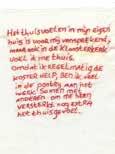 Het thuisvoelen in mijn eigen
huis is voor mij vanzelfsprekend,
maar ook in de Kloosterkerk
voel ik me thuis.
Omdat ik REGELMATIG DE
KOSTER HELP, BEN ik veel
in de aan het
werk. Samen met
ANDEREN om me heen
VERSTERKT NOG EXTRA
het thuisgevoel.